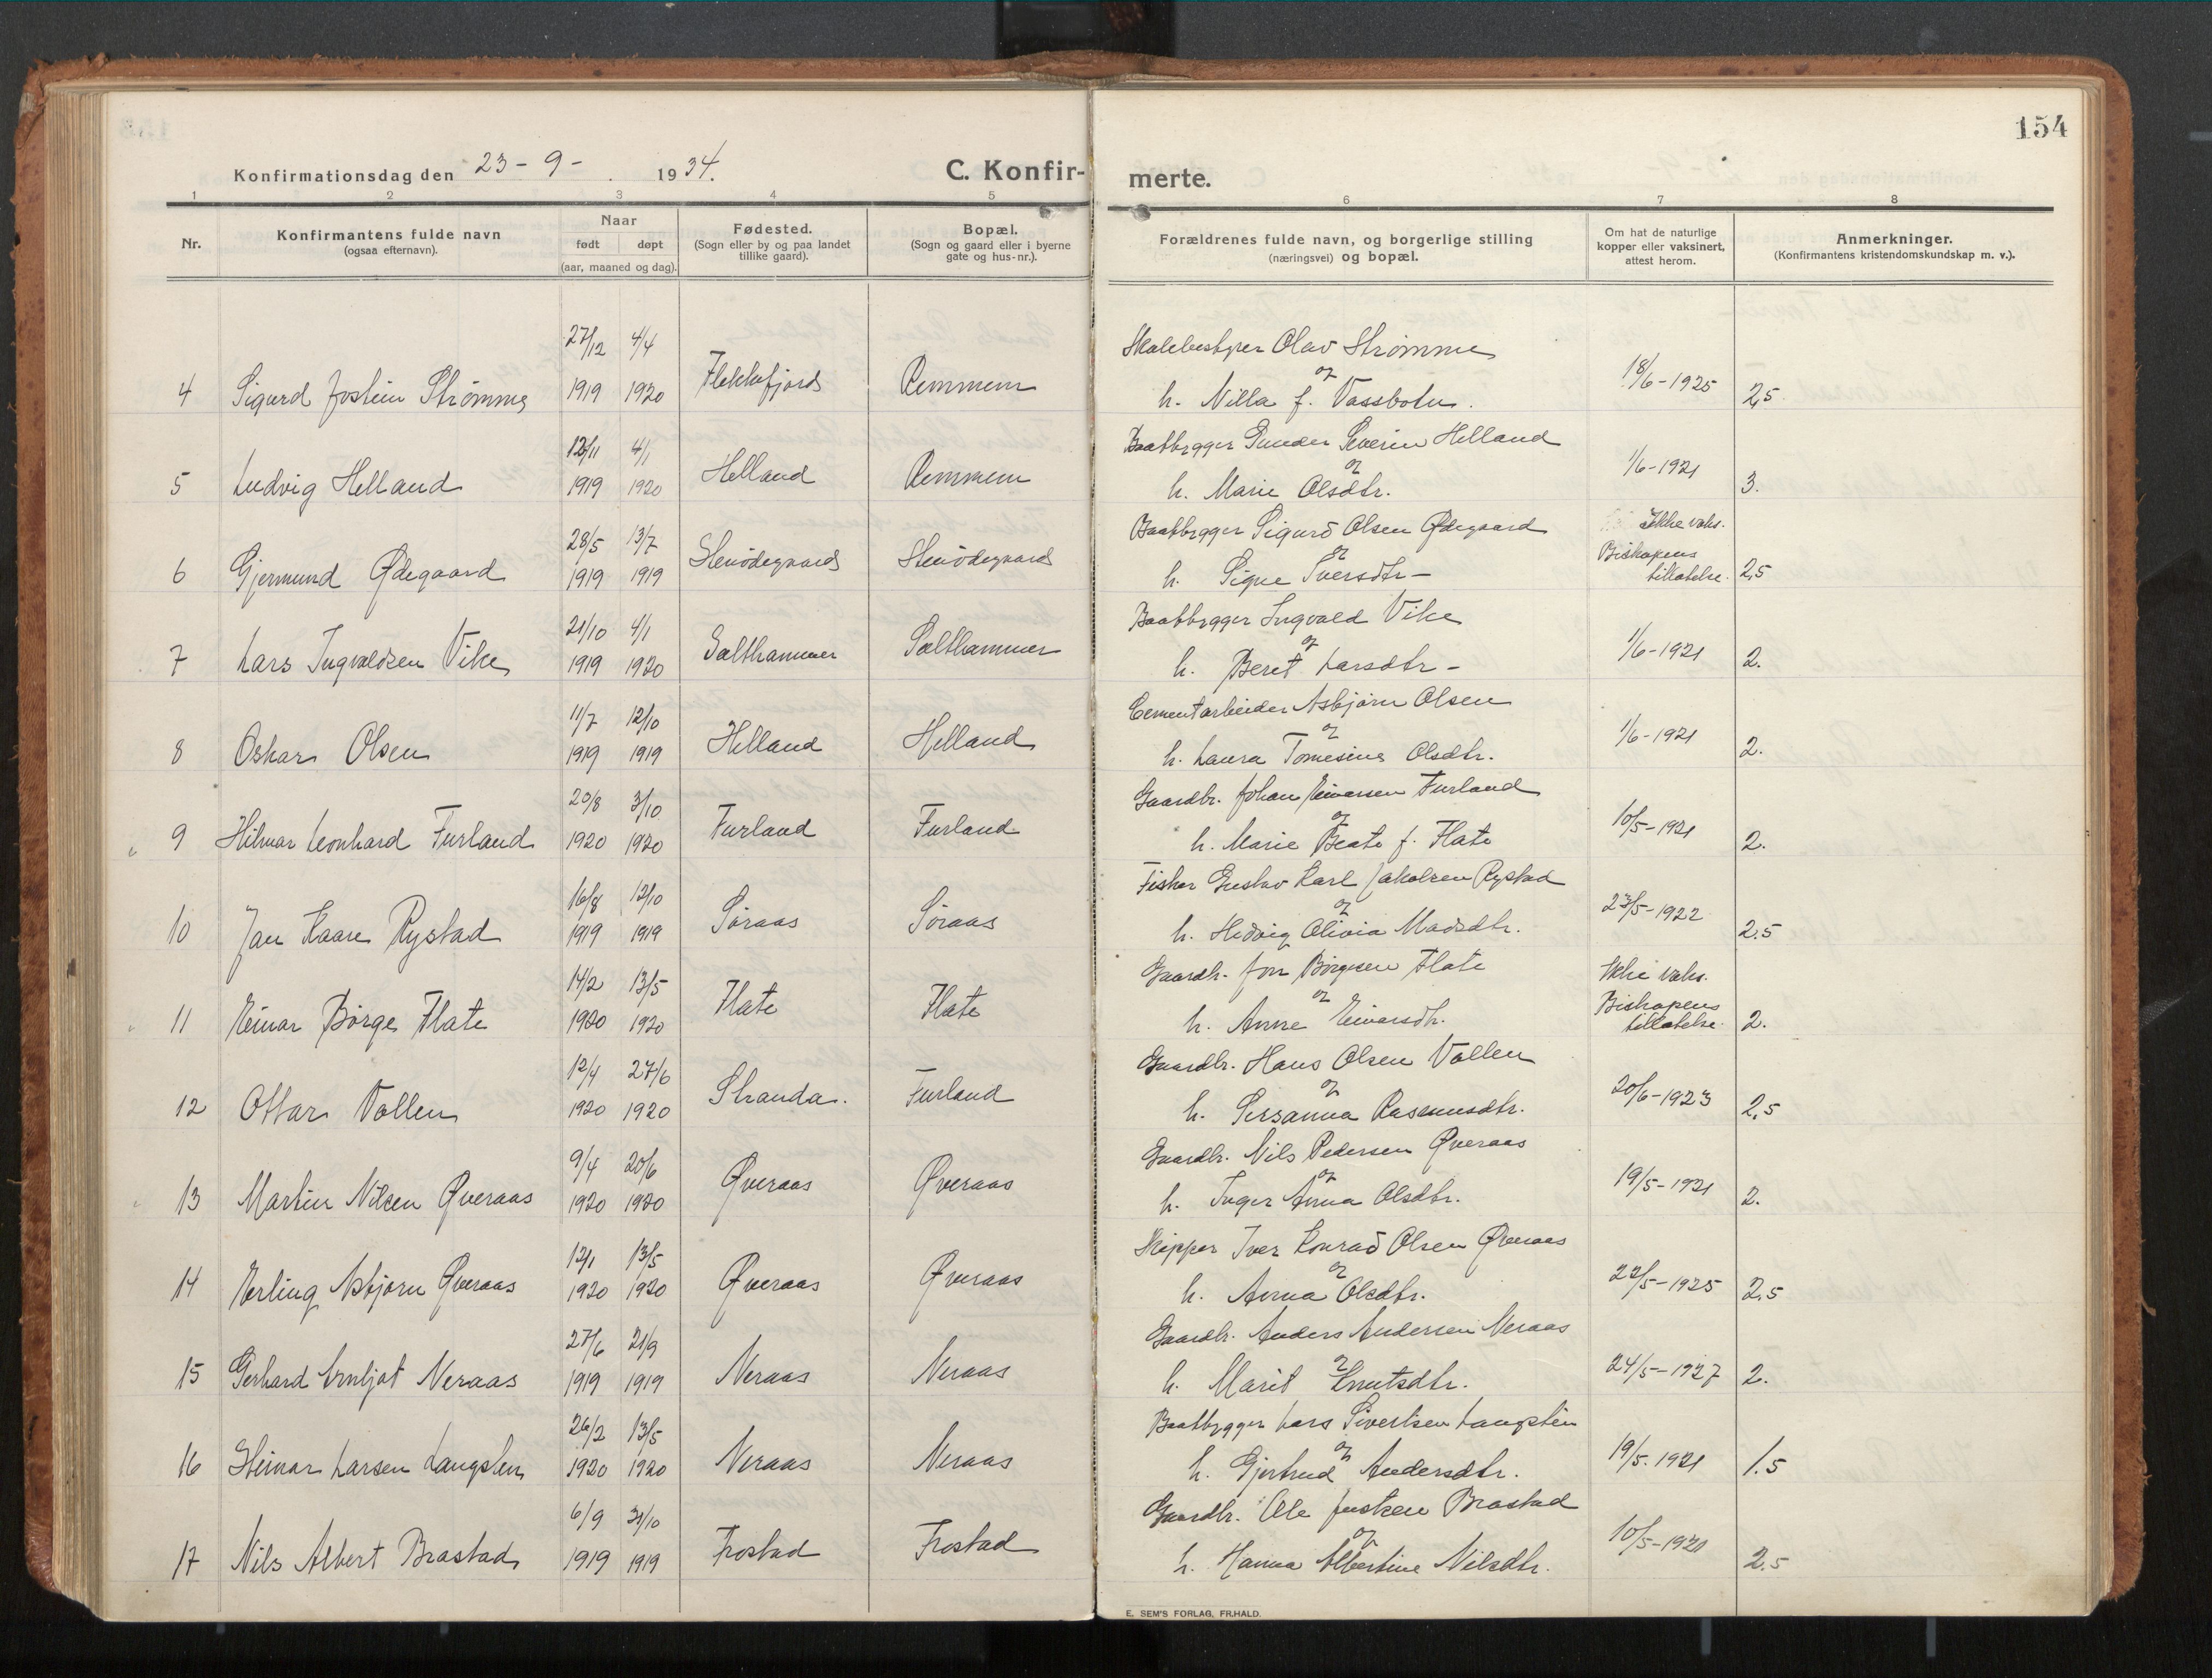 154
Konfirmationsdag den 23-9- 1934. C. Konfir-merte.
1 2 3 4 5 6 7 8
Nr.
Konfirmantens fulde navn
(ogsaa efternavn).
Naar
født døpt
(aar, maaned og dag).
Fødested.
(Sogn eller by og paa landet
tillike gaard).
Bopæl.
(Sogn og gaard eller i byerne
gate og hus-nr.).
Forældrenes fulde navn, og borgerlige stilling
(næringsvei) og bopæl.
Om hat de naturlige
kopper eller vaksinert,
attest herom.
Anmerkninger.
(Konfirmantens kristendomskundskap m. v.).
27/12 4/4 Skolebestyrer Olav Strømme
og
4 Sigurd Jostein Strømme 1919 1920 Flekkefjord Remmem h. Nilla f. Vassbotn. 18/6-1925 2,5
12/11 4/1 Baatbygger Gunder Severin Helland
og
5 Ludvig Helland 1919 1920 Helland Remmem h. Marie Olsdtr. 1/6-1921 3.
28/5 13/7 Baatbygger Sigurd Olsen Ødegaard Ikke vaks.
og Biskopens
6 Gjermund Ødegaard 1919 1919 Stenødegaard Stenødegaard h. Signe Iversdtr- tillatelse. 2,5
21/10 4/1 Baatbygger Ingvald Vike
og
7 Lars Ingvaldsen Vike 1919 1920 Salthammer Salthammer h. Beret Larsdtr- 1/6-1921 2.
11/7 12/10 Cementarbeider Asbjørn Olsen
og
8 Oskar Olsen 1919 1919 Helland Helland h. Laura Tomesine Olsdtr. 1/6-1921 2.
20/8 3/10 Gaardbr. Johan Einarsen Furland
og
9 Hilmar Leonhard Furland 1920 1920 Furland Furland h. Marie Beate f. Flate 10/5-1921 2.
16/8 12/10 Fisker Gustav Karl Jakobsen Rystad
og
10 Jan Kaare Rystad 1919 1919 Søraas Søraas h. Hedvig Olivia Madsdtr. 23/5-1922 2.5
14/2 13/5 Gaardb. Jon Børgesen Flate Ikke vaks.
og Biskopens
11 Einar Børge Flate 1920 1920 Flate Flate h. Anne Einarsdtr. tillatelse. 2.
12/4 27/6 Gaardbr. Hans Olsen Vollen
og
12 Ottar Vollen 1920 1920 Stranda. Furland h. Susanna Rasmusdtr. 20/6-1923 2,5
9/4 20/6 Gaardbr. Nils Pedersen Øveraas
og
13 Martin Nilsen Øveraas 1920 1920 Øveraas Øveraas h. Inger Anna Olsdtr. 19/5-1921 2.
12/1 13/5 Skipper Iver Konrad Olsen Øveraas
og
14 Erling Asbjørn Øveraas 1920 1920 Øveraas Øveraas h. Anna Olsdtr. 22/5-1925 2.5
27/6 21/9 Gaardbr. Anders Andersen Neraas
og
15 Gerhard Arnljot Neraas 1919 1919 Neraas Neraas h. Marit Knutsdtr. 24/5-1927 2.
26/2 13/5 Baatbygger Lars Sivertsen Langsten
og
16 Steinar Larsen Langsten 1920 1920 Neraas Neraas h. Gjertrud Andersdtr. 19/5.1921 1.5
6/9 31/10 Gaardbr. Ole Justsen Brastad
og
17 Nils Albert Brastad 1919 1919 Frostad Frostad h. Hanna Albertine Nilsdtr. 10/5-1921 2.5
E. SEM'S FORLAG, FR.HALD.